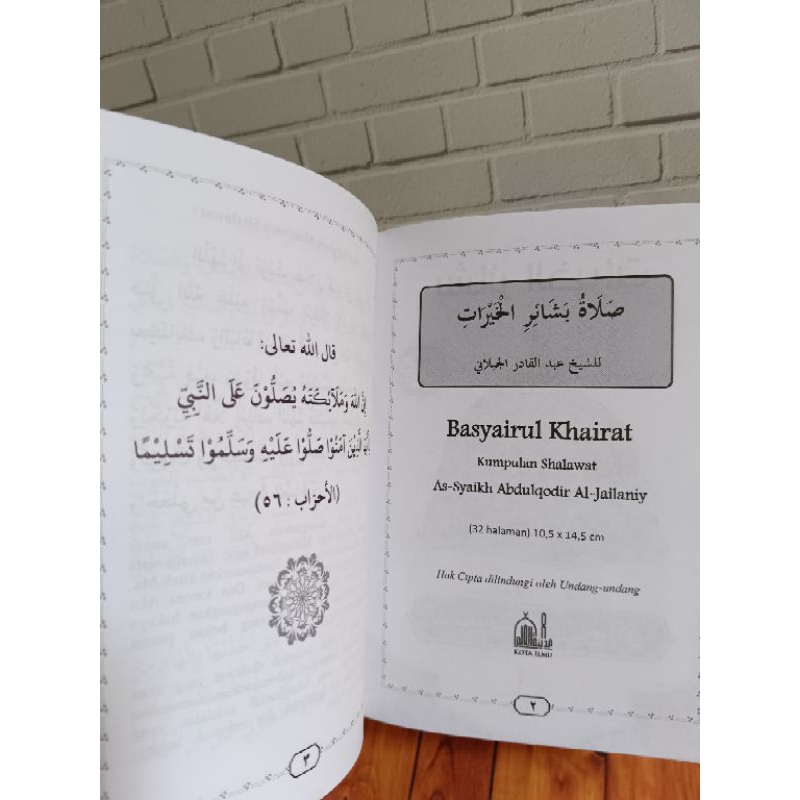 صَلَاةُ بَشَائِرِ الْخَيْرَاتِ
للشيخ عبد القادر الجيلاني
Basyairul Khairat
Kumpulan Shalawat
As-Syaikh Abdulqodir Al-Jailaniy
(32 halaman) 10,5 x 14,5 cm
Hak Cipta dilindungi oleh Undang-undang
KOTA ILMU
٢
قال الله تعالى:
إِنَّ اللهَ وَمَلَآئِكَتَهُ يُصَلُّوْنَ عَلَى النَّبِيِّ
الَّذِيْنَ آمَنُوْا صَلُّوْا عَلَيْهِ وَسَلِّمُوْا تَسْلِيْمًا
(الأحزاب : ٥٦)
٣